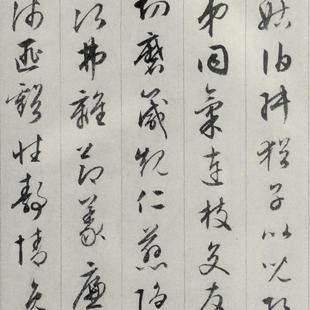 姑伯叔猶子比兒孔
弟同氣連枝交友
切磨箴規仁慈隱
次弗離節義廉
沛匪虧性靜情逸